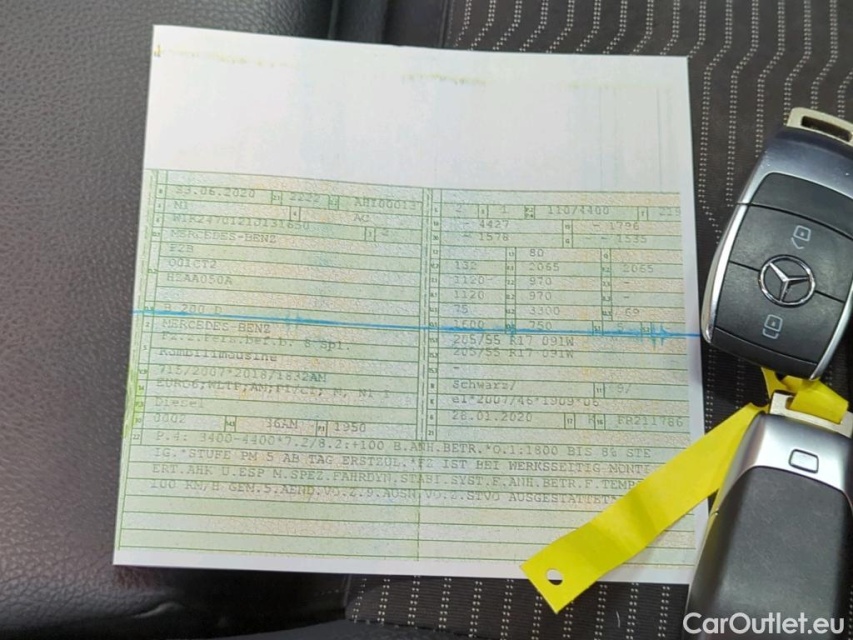 23.06.2020 2222 AHI00013 2 1 110/4400 219
M1 AC - 4427 - 1796
W1K2470121D131650 - 1578 - 1535
MERCEDES-BENZ 80
F2B 132 2065 2065
001CT2 1120- 970 -
HZAA050A 1120 970 -
75 3300 69
B 200 D 1600 750 5
MERCEDES-BENZ 205/55 R17 091W
Fz.z.Pers.bef.b. 8 Spl. 205/55 R17 091W
Kombilimousine -
715/2007*2018/1832AM
EURO6;WLTP,AM;PI/CI; M, N1 I Schwarz/ 9/
Diesel e1*2007/46*1909*06
0002 36AM 1950 28.01.2020 K FR211766
P.4: 3400-4400*7.2/8.2:+100 B.ANH.BETR.*O.1:1800 BIS 8% STE
IG.*STUFE PM 5 AB TAG ERSTZUL.*FZ IST BEI WERKSEITIG MONTI
ERT.AHK U.ESP M.SPEZ.FAHRDYN.STABI.SYST.F.ANH.BETR.F.TEMP
100 KM/H GEM.5.AEND.VO.Z.9.AUSN.VO.Z.STVO AUSGESTATTET*
CarOutlet.eu